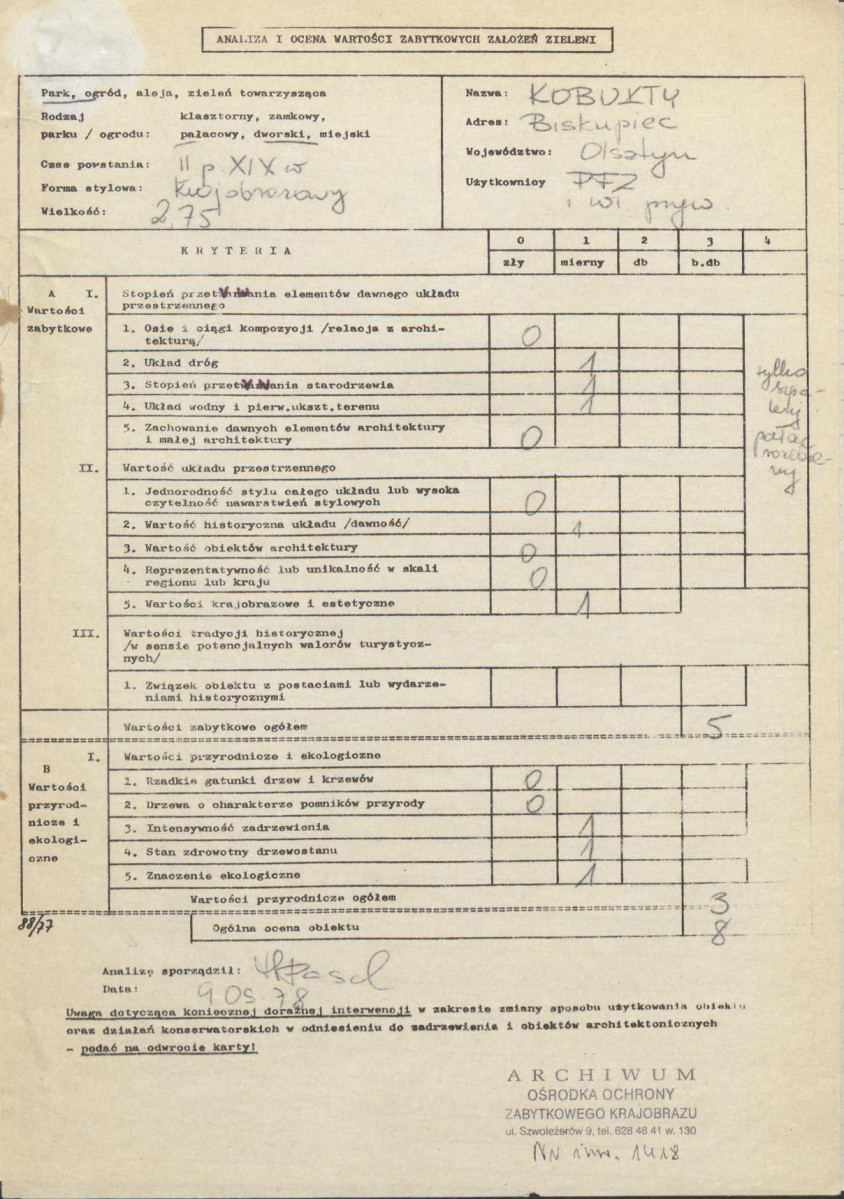 ANALIZA I OCENA WARTOŚCI ZABYTKOWYCH ZAŁOŻEŃ ZIELENI
Park, ogród, aleja, zieleń towarzysząca
Rodzaj klasztorny, zamkowy,
parku / ogrodu: pałacowy, dworski, miejski
Czas powstania: II p. XIX w
Forma stylowa: Krajobrazowy
Wielkość: 2,75
Nazwa: KOBUŁTY
Adres: Biskupiec
Województwo: Olsztyn
Użytkownicy PFZ
i wł. pryw.
KRYTERIA 0 1 2 3 4
zły mierny db b.db
A I. Stopień przetrwania elementów dawnego układu
Wartości przestrzennego
zabytkowe 1. Osie i ciągi kompozycji /relacja z archi-
tekturą/ 0
2. Układ dróg 1
3. Stopień przetrwania starodrzewia 1
4. Układ wodny i pierw.ukszt.terenu 1
5. Zachowanie dawnych elementów architektury
i małej architektury 0
tylko
szpa-
lery
pałac
rozebra-
ny
II. Wartość układu przestrzennego
1. Jednorodność stylu całego układu lub wysoka
czytelność nawarstwień stylowych 0
2. Wartość historyczna układu /dawność/ 1
3. Wartość obiektów architektury 0
4. Reprezentatywność lub unikalność w skali
regionu lub kraju 0
5. Wartości krajobrazowe i estetyczne 1
III. Wartości tradycji historycznej
/w sensie potencjalnych walorów turystycz-
nych/
1. Związek obiektu z postaciami lub wydarze-
niami historycznymi
Wartości zabytkowe ogółem 5
B I. Wartości przyrodnicze i ekologiczne
Wartości 1. Rzadkie gatunki drzew i krzewów 0
przyrod- 2. Drzewa o charakterze pomników przyrody 0
nicze i 3. Intensywność zadrzewienia 1
ekologi- 4. Stan zdrowotny drzewostanu 1
czne 5. Znaczenie ekologiczne 1
Wartości przyrodnicze ogółem 3
88/77 Ogólna ocena obiektu 8
Analizę sporządził:
Data: 9 05.78
Uwaga dotycząca koniecznej doraźnej interwencji w zakresie zmiany sposobu użytkowania obiektu
oraz działań konserwatorskich w odniesieniu do zadrzewienia i obiektów architektonicznych
- podać na odwrocie karty!
ARCHIWUM
OŚRODKA OCHRONY
ZABYTKOWEGO KRAJOBRAZU
ul. Szwoleżerów 9, tel. 628 48 41 w. 130
Nr inw. 1418